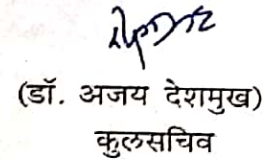 (डॉ. अजय देशमुख)
कुलसचिव